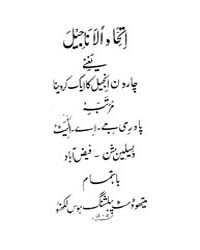 اتحاد الاناجیل
یعنے
چارون انجیل کا ایک کر دینا
مرتبہ
پادری جے - اے -
ویسلین شن - فیض آباد
باہتمام
میتھوڈسٹ پبلشنگ ہوس لکھنؤ